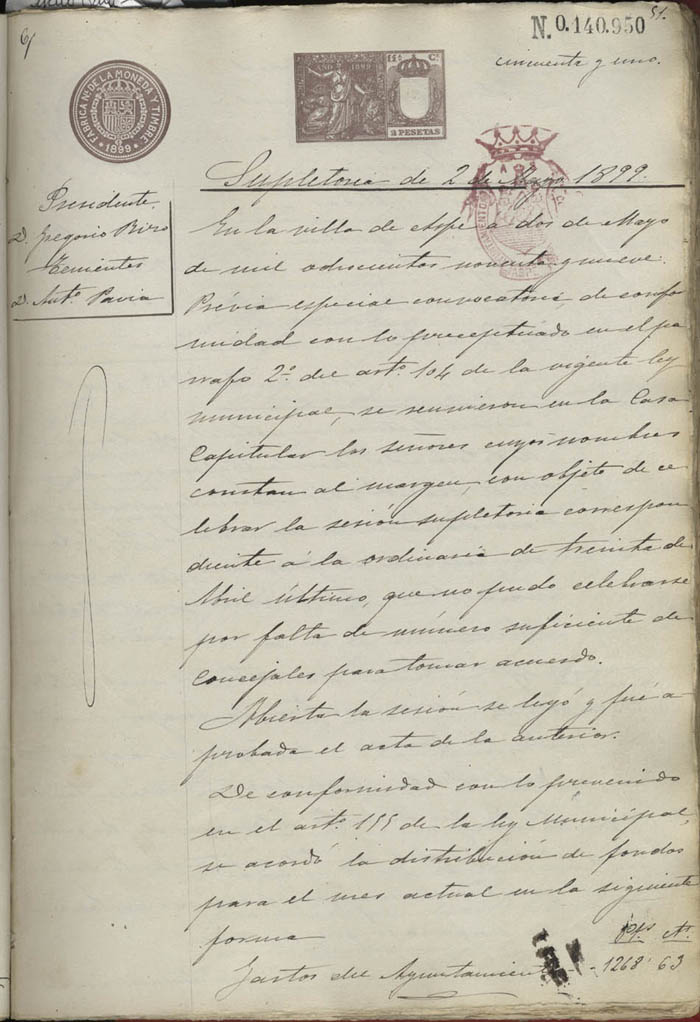 6/
51.
N. 0.140.950
cincuenta y uno.
FABRICA NAL. DE LA MONEDA Y TIMBRE
1899
AÑO 1899
2 PESETAS
Supletoria de 2 de Mayo 1899.
Presidente
D. Gregorio
Tenientes
D. Antº Pavia
En la villa de Aspe a dos de Mayo
de mil ochocientos noventa y nueve
Prévia especial convocatoria, de confor
midad con lo preceptuado en el pá
rrafo 2º. del artº. 104 de la vigente ley
municipal, se reunieron en la Casa
Capitular los señores cuyos nombres
constan al margen, con objeto de ce
lebrar la sesión supletoria correspon
diente á la ordinaria de treinta de
Abril último, que no pudo celebrarse
por falta de número suficiente de
Concejales para tomar acuerdo.
Abierta la sesión se leyó y fué a
probada el acta de la anterior.
De conformidad con lo prevenido
en el artº. 155 de la ley Municipal,
se acordó la distribución de fondos
para el mes actual en la siguiente
forma
Pts. Cs.
Gastos del Ayuntamiento - - 1268' 63